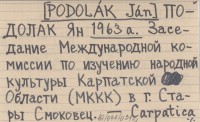 [PODOLÁK Ján] ПО-
ДОЛАК Ян 1963 а. Засе-
дание Международной ко-
миссии по изучению народной
культуры Карпатской
Области (МККК) в г. Ста-
ры Смоковец. — Carpatica